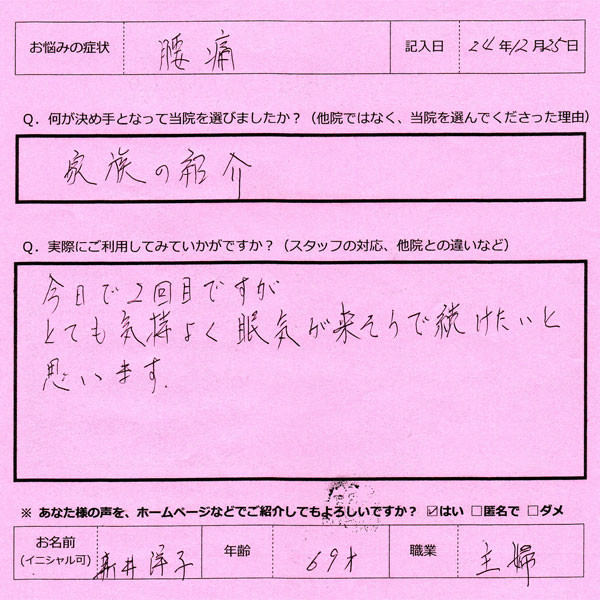 お悩みの症状 腰痛 記入日 24年12月25日
Q. 何が決め手となって当院を選びましたか？（他院ではなく、当院を選んでくださった理由）
家族の紹介
Q. 実際にご利用してみていかがですか？（スタッフの対応、他院との違いなど）
今日で2回目ですが
とても気持よく眠気が来そうで続けたいと
思います.
※ あなた様の声を、ホームページなどでご紹介してもよろしいですか？ ☑はい □匿名で □ダメ
お名前 新井洋子 年齢 69才 職業 主婦
(イニシャル可)